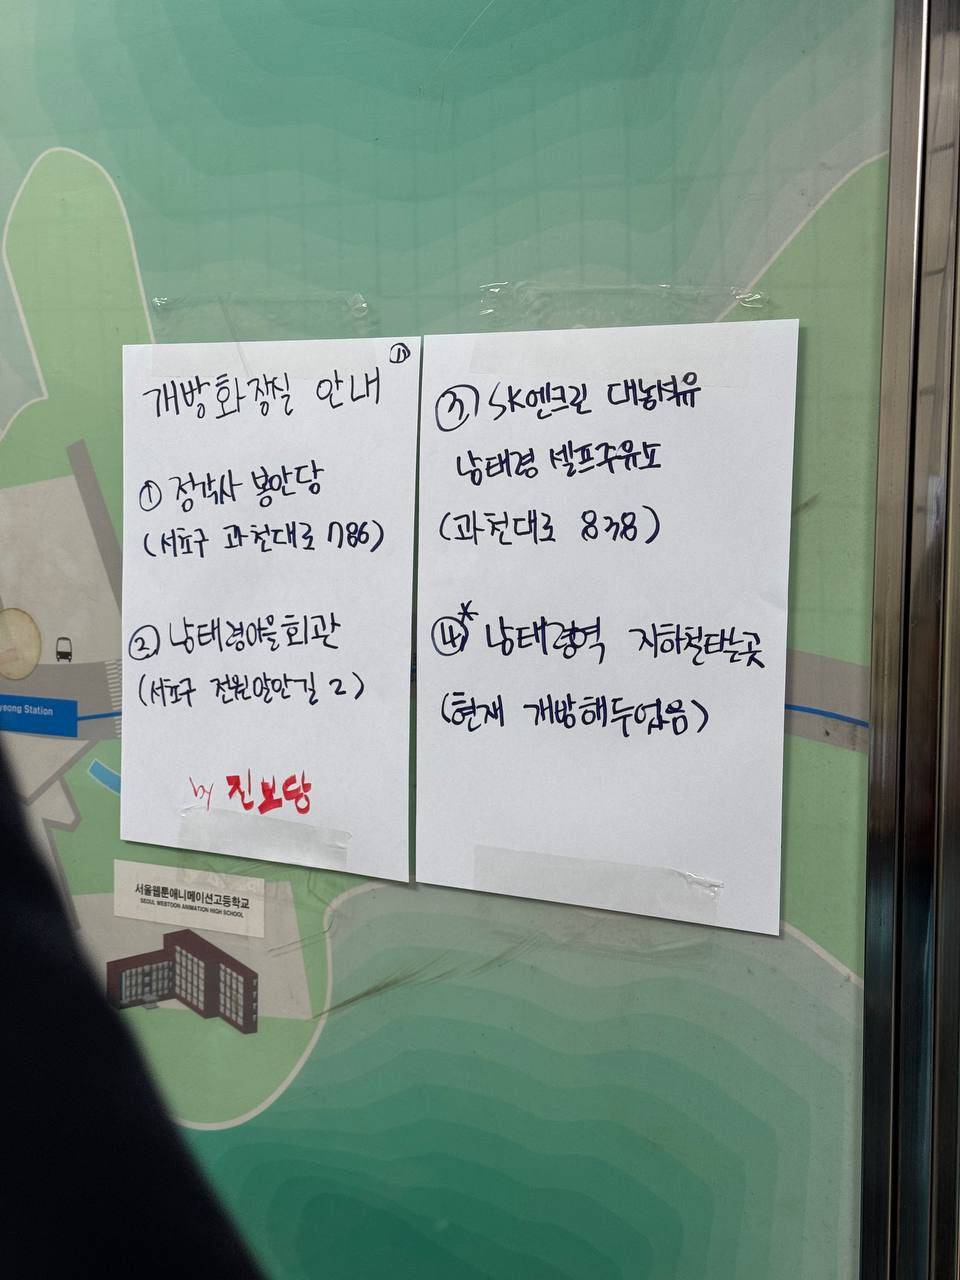 ①
개방화장실 안내
① 정각사 봉안당
(서초구 과천대로 786)
② 남태령마을회관
(서초구 전원말안길 2)
by 진보당
③ SK엔크린 대농석유
남태령 셀프주유소
(과천대로 838)
④* 남태령역 지하철타는곳
(현재 개방해두었음)
yeong Station
서울웹툰애니메이션고등학교
SEOUL WEBTOON ANIMATION HIGH SCHOOL